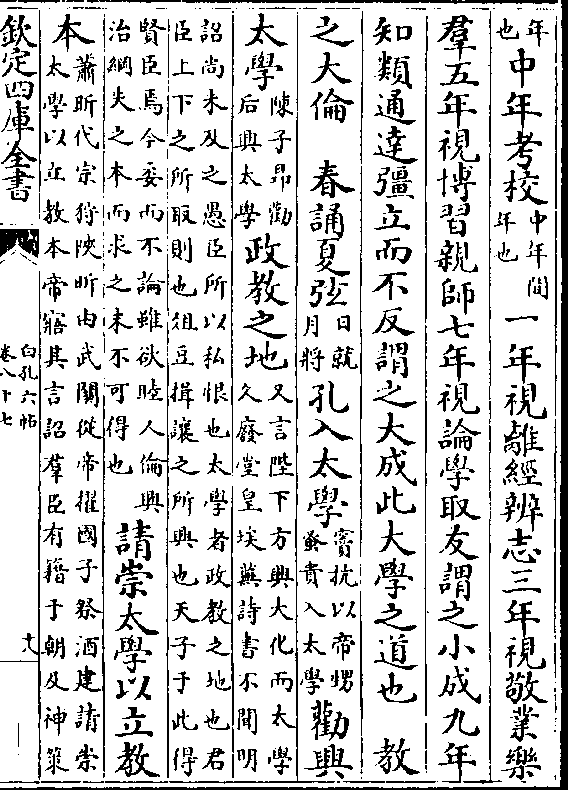 年也中年考校中年間年也一年視離經辨志三年視敬業樂
羣五年視博習親師七年視論學取友謂之小成九年
知類通達彊立而不反謂之大成此大學之道也　教
之大倫　春誦夏弦日就月將孔入太學竇抗以帝甥蚤貴入太學勸興
太學陳子昂勸后興太學政教之地又言陛下方興大化而太學久廢堂皇埃蕪詩書不聞明
詔尚未及之愚臣所以私恨也太學者政教之地也君
臣上下之所取則也俎豆揖讓之所興也天子于此得
賢臣焉今委而不論雖欲睦人倫興
治綱失之本而求之末不可得也請崇太學以立教
本蕭昕代宗狩陜昕由武關從帝擢國子祭酒建請崇
太學以立教本帝寤其言詔羣臣有籍于朝及神策
欽定四庫全書
白孔六帖
卷八十七
十八